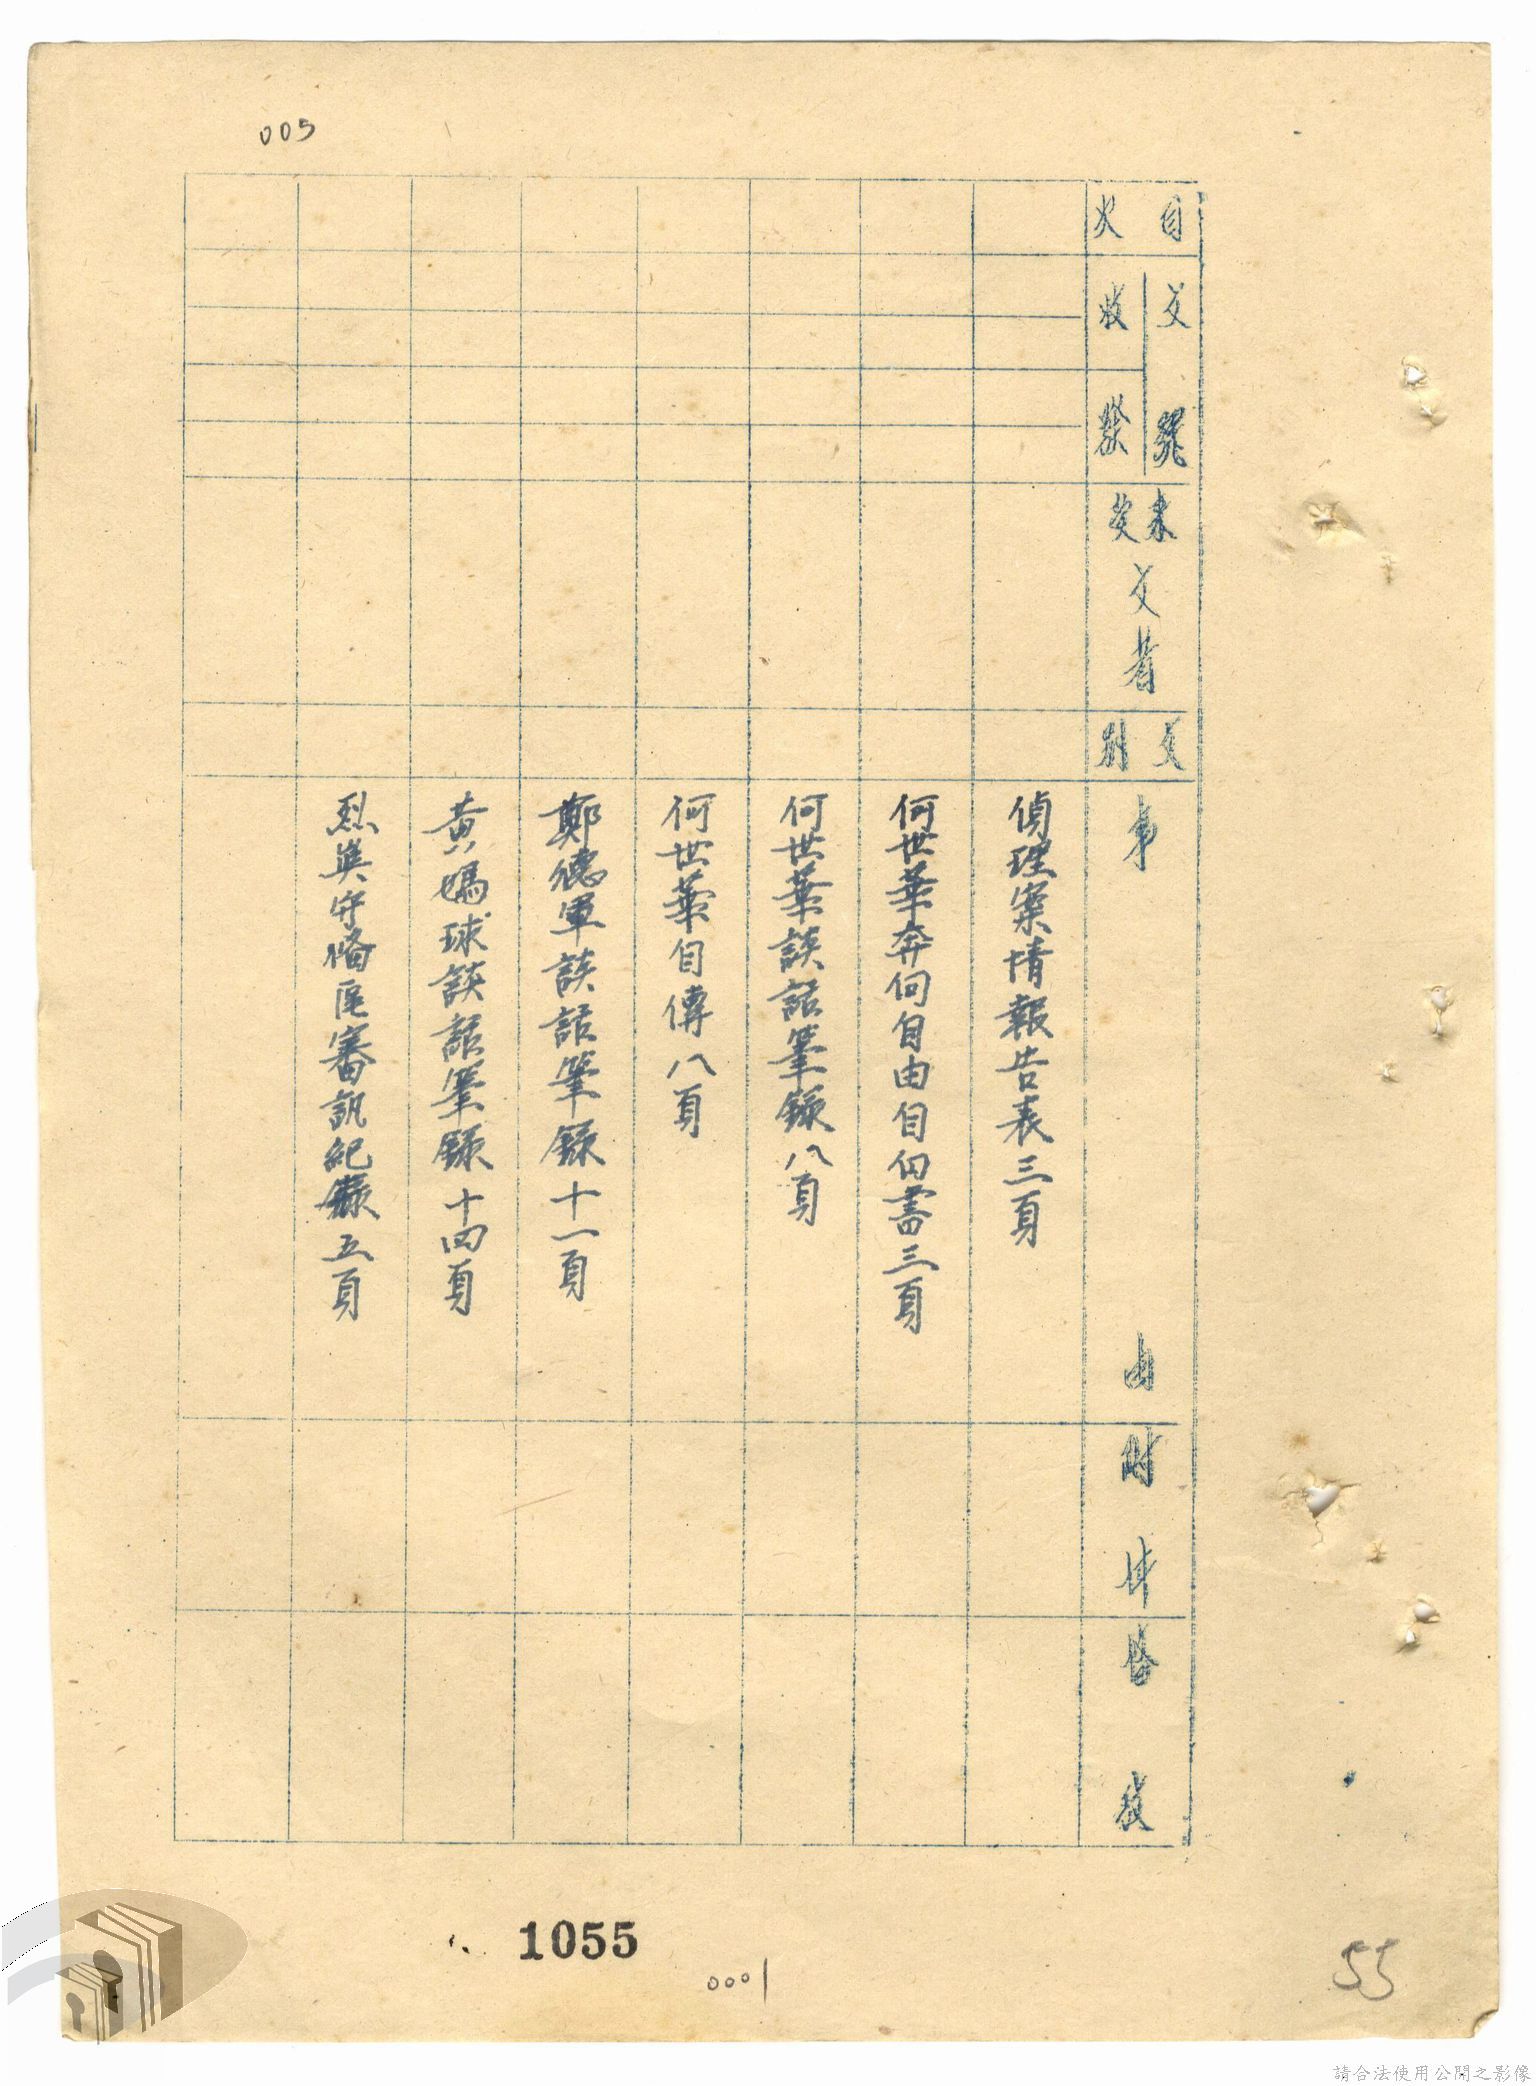 005
目次
文號
收發
來文者
文別
事由
附件
備
偵理案情報告表三頁
何世華奔向自由自白書三頁
何世華談話筆錄八頁
何世華自傳八頁
鄭德軍談話筆錄十一頁
黃媽球談話筆錄十四頁
烈嶼守備區審訊紀錄五頁
1055
0001
55
請合法使用公開之影像